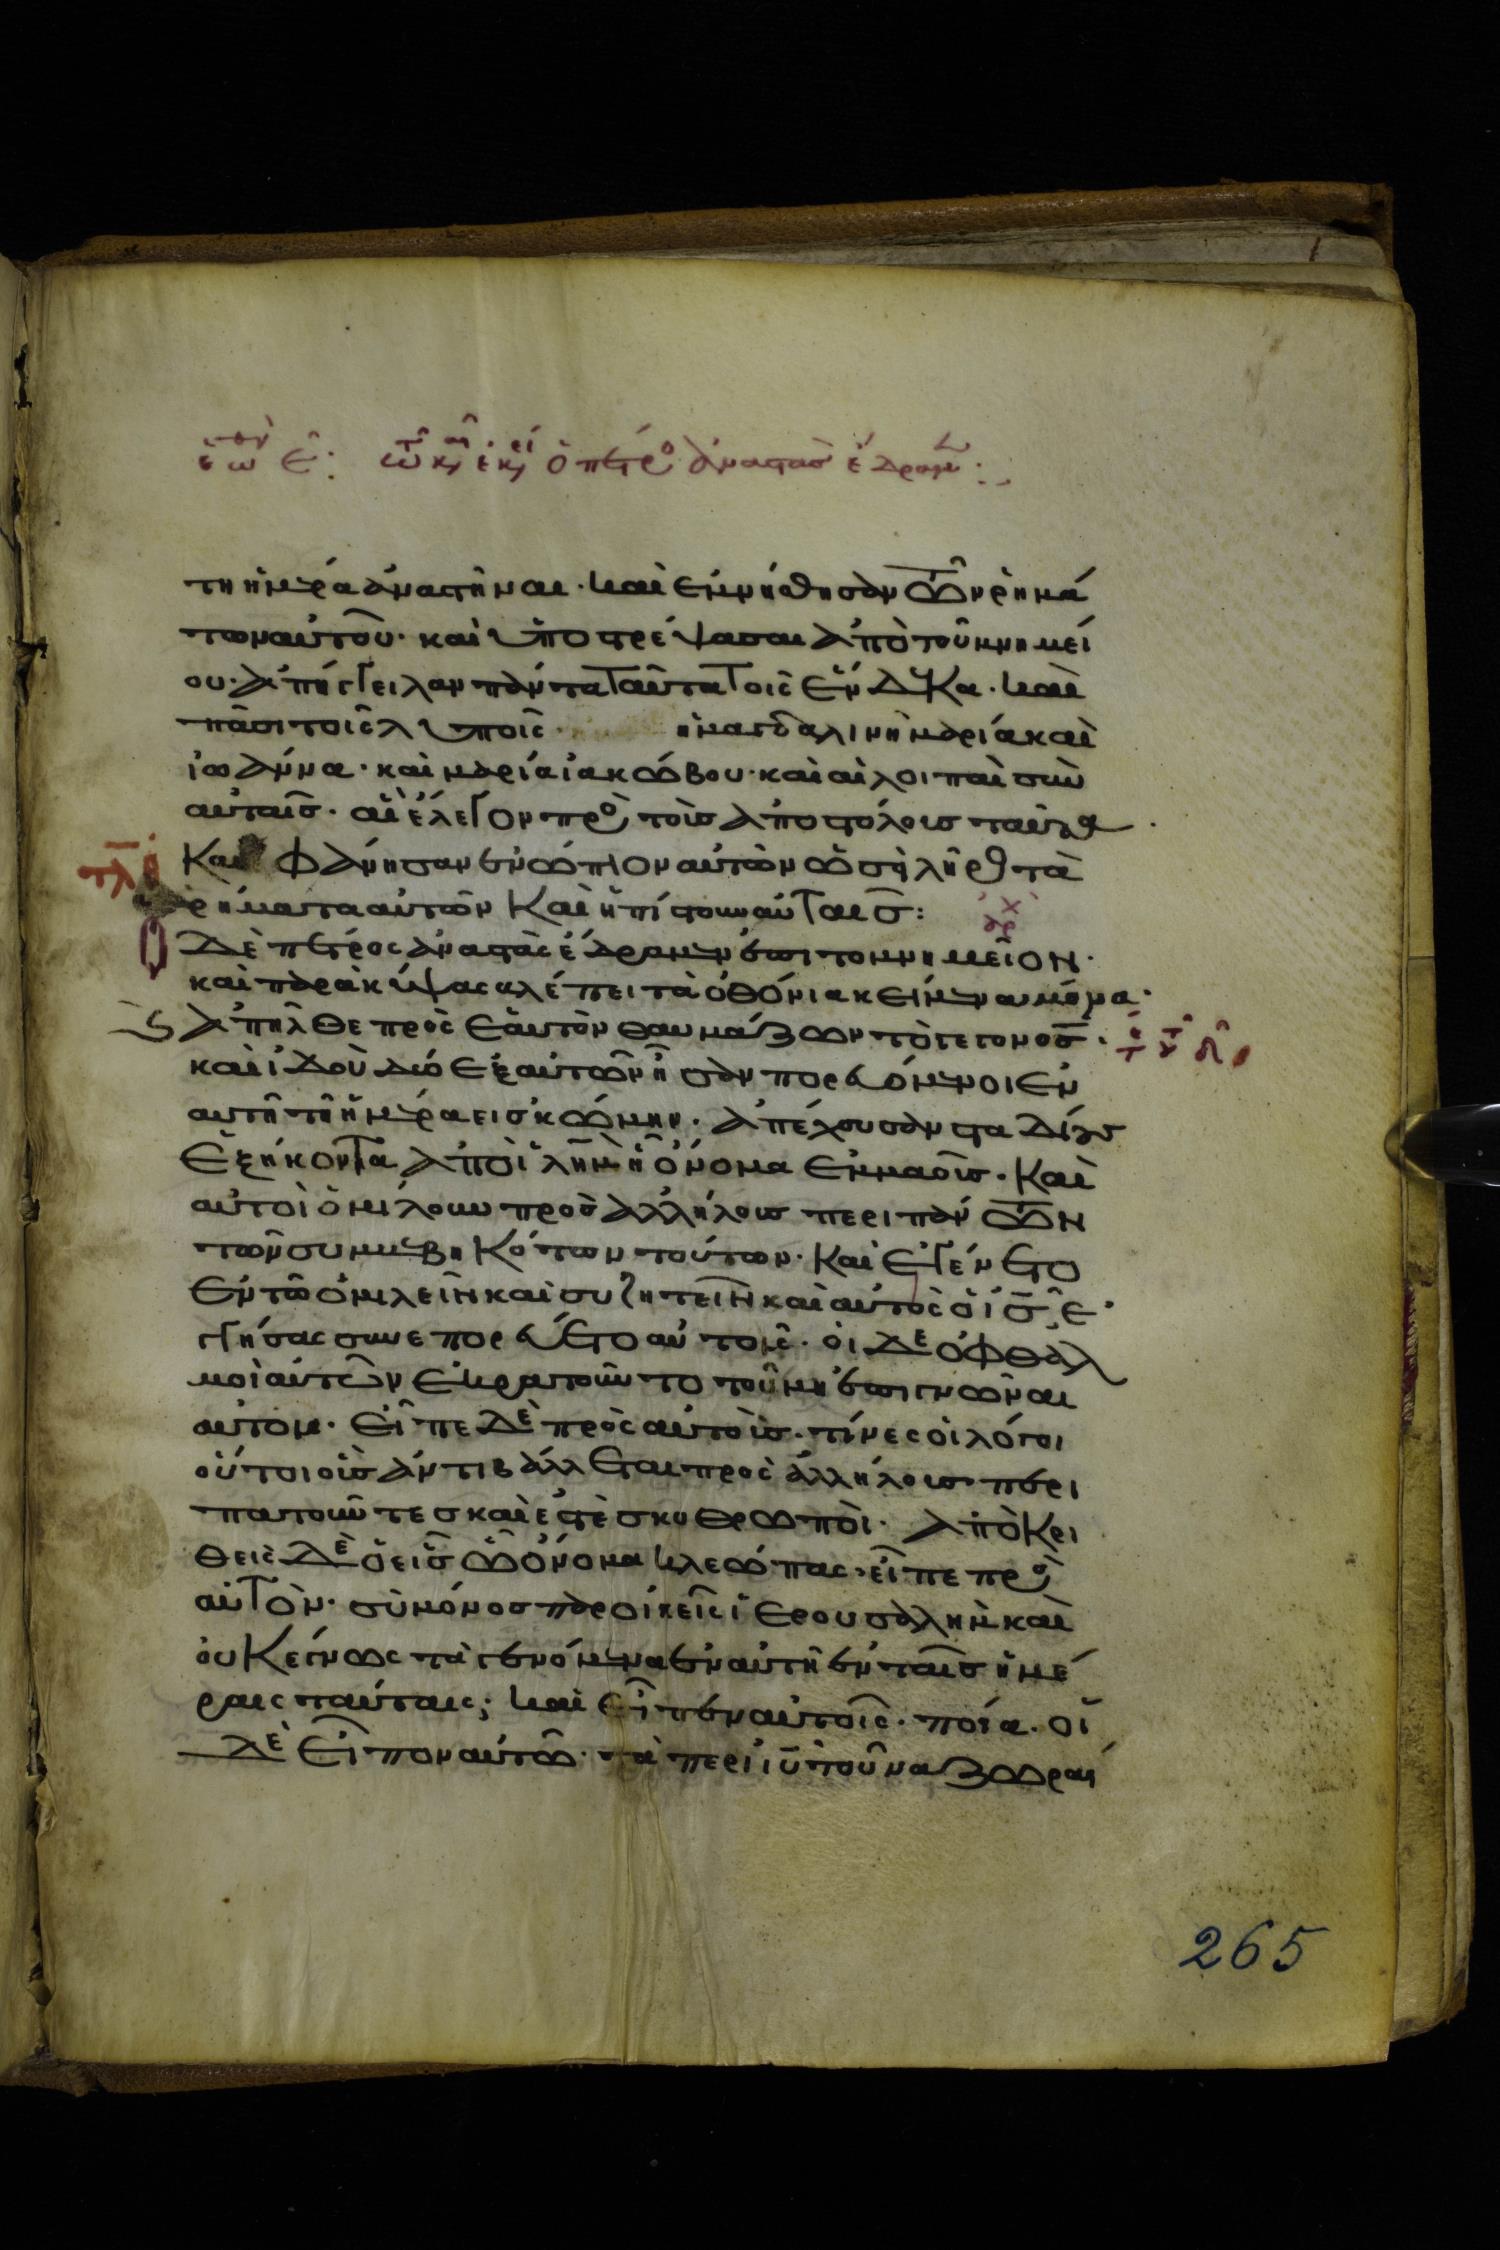 ἑωθιν ε: τω κω εκη ὁ πετρο ἀναστασ ἔδραμεν:
τη ἡμέρα ἀναστῆναι· καὶ ἐμνήσθησαν τῶν ρημά
των αὐτοῦ· καὶ ὑποστρέψασαι ἀπὸ τοῦ μνημεί
ου· ἀπήγγειλαν πάντα ταῦτα τοῖς ἕνδεκα· καὶ
πᾶσι τοῖς λυποῖς· ἡ μαγδαλινὴ μαρία καὶ
ἰωάννα· καὶ μαρία ἰακώβου· καὶ αἱ λοιπαὶ σὺν
αὐταῖς· αἳ ἔλεγον πρὸ τοὺσ ἀποστόλουσ ταῦτα·
Καὶ ἐφάνησαν ἐνώπιον αὐτῶν ὡσὴ λῆρος τὰ
ῥήματα αὐτῶν Καὶ ἠπίστουν αὐταῖσ:
αρχ
Ὁ Δὲ πέτρος ἀναστὰς ἔδραμεν ἐπι το μνημεῖον·
καὶ παρακύψας βλέπει τὰ ὀθόνια κείμενα μόνα·
ἀπῆλθε πρὸς ἑαυτὸν θαυμάζων τὸ γεγονοσ·
καὶ ἰδοὺ δύο ἐξ αὐτῶν ἦσαν πορευόμενοι ἐν
αυτῆ τῆ ἡμέρα εισ κώμην· ἀπέχουσαν σταδίουσ
Ἑξήκοντα ἀπὸ ἰλημ ἧ ὄνομα ἐμμαοῦσ· Καὶ
αὐτοὶ ὁμίλουν πρὸσ ἀλλήλουσ περι πάντων
τῶν συμβεβηκότων τούτων· Καὶ ἐγένετο
ἐν τῶ ὁμιλεῖν καὶ συζητεῖν καὶ αὐτὸς ὁ ἰσ ἐγ
γήσας συνεπορεύετο αὐτοῖς· οἱ Δὲ ὀφθαλ
μοὶ αὐτῶν ἐκρατοῦντο τοῦ μὴ ἐπιγνῶναι
αὐτον· Εἶπε Δὲ πρὸς αὐτοὺσ· τίνες οἱ λόγοι
οὗτοι οὓσ ἀντιβάλλεται πρὸς ἀλλήλουσ περι
πατοῦντεσ καὶ ἐστὲ σκυθρωποὶ· Ἀποκρι
θεις Δὲ ὁ εἷσ ὧ ὄνομα κλεώπας· εἶπε πρὸ
αὐτὸν· σὺ μόνοσ παροικεῖς ἱερουσαλὴμ καὶ
οὐκ ἔγνως τὰ γενόμενα ἐν αὐτῆ ἐν ταῖσ ἡμέ
ραις ταύταις; καὶ εἶπεν αὐτοῖς· ποῖα· οἱ
Δὲ Εἶπον αὐτῶ· τὰ περὶ ἰυ τοῦ ναζωραί
265